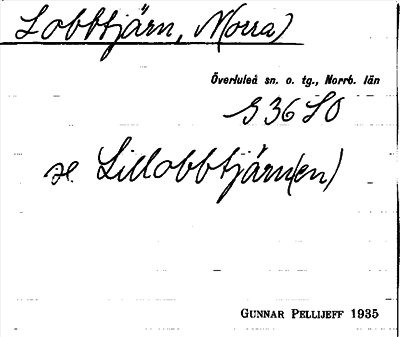 Lobbtjärn, Norra
Överluleå sn. o. tg., Norrb. län
S36SO
se Lillobbtjärn(en)
GUNNAR PELLIJEFF 1935